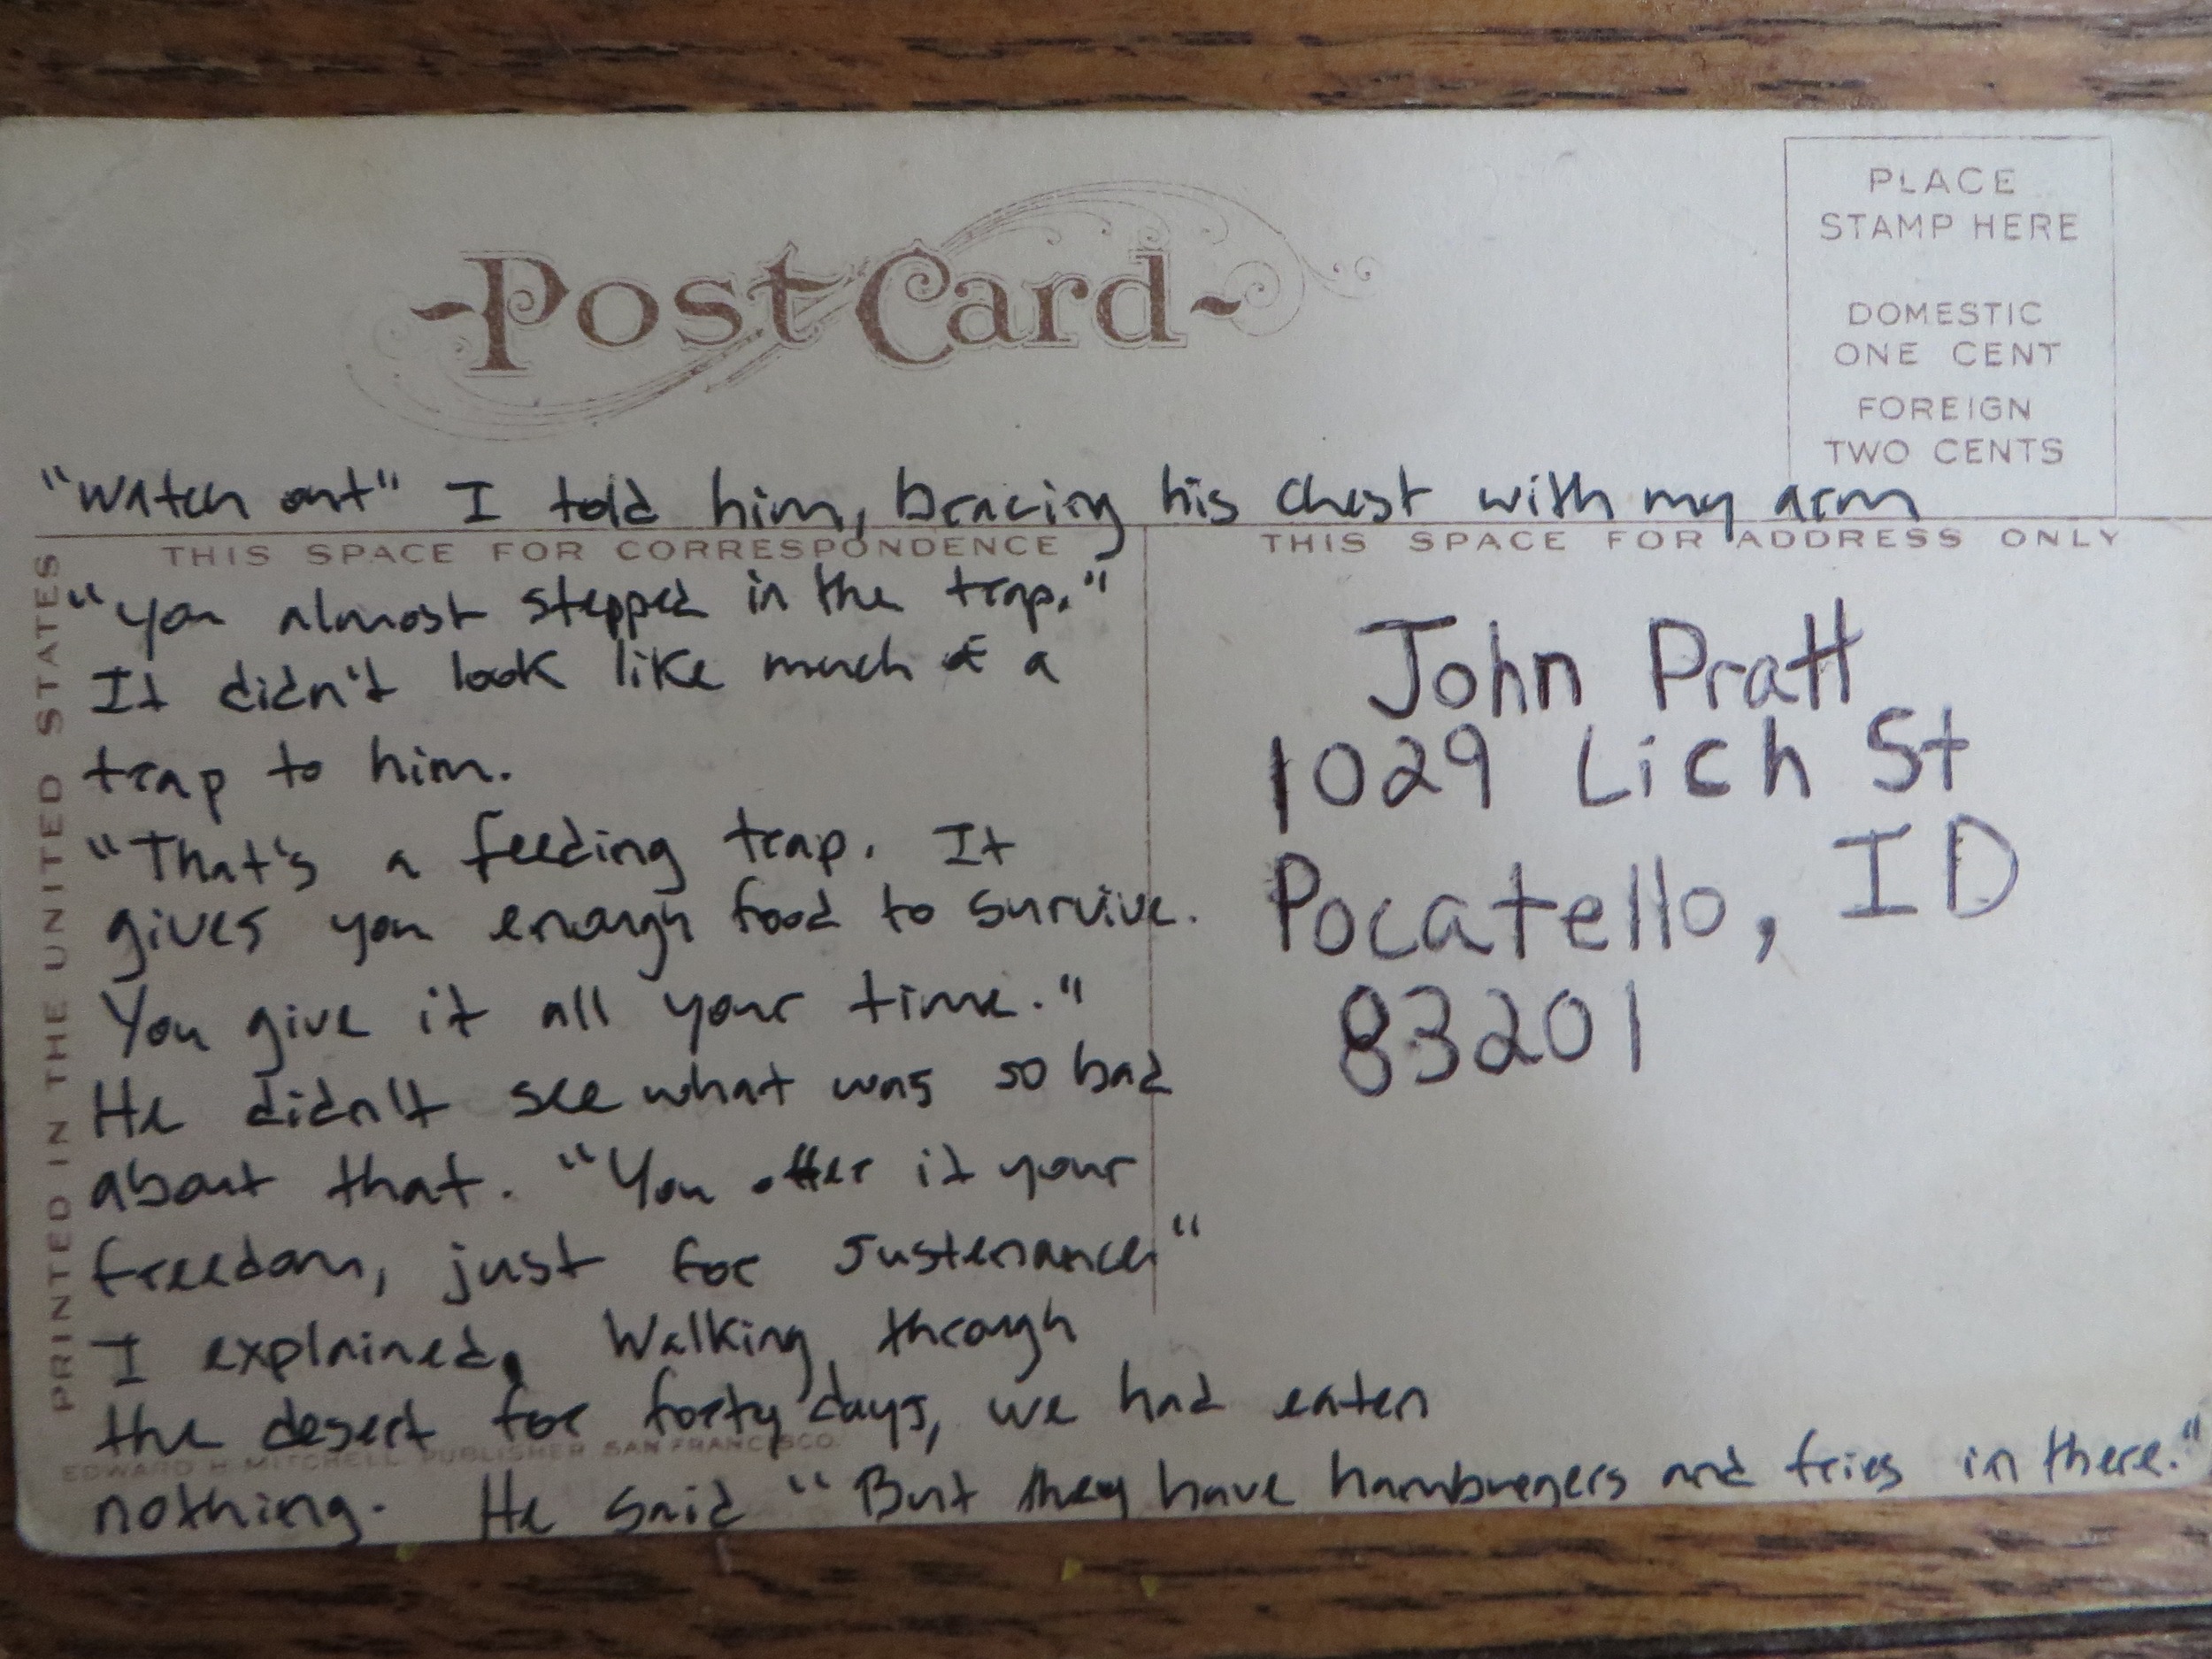 Post Card
PLACE
STAMP HERE
DOMESTIC
ONE CENT
FOREIGN
TWO CENTS
"Watch out" I told him, bracing his chest with my arm
THIS SPACE FOR CORRESPONDENCE
"You almost stepped in the trap."
It didn't look like much of a
trap to him.
"That's a feeding trap. It
gives you enough food to survive.
You give it all your time."
He didn't see what was so bad
about that. "You offer it your
freedom, just for sustenance"
I explained. Walking through
the desert for forty days, we had eaten
nothing. He said "But they have hamburgers and fries in there."
THIS SPACE FOR ADDRESS ONLY
John Pratt
1029 Lich St
Pocatello, ID
83201
PRINTED IN THE UNITED STATES
EDWARD H. MITCHELL PUBLISHER SAN FRANCISCO.